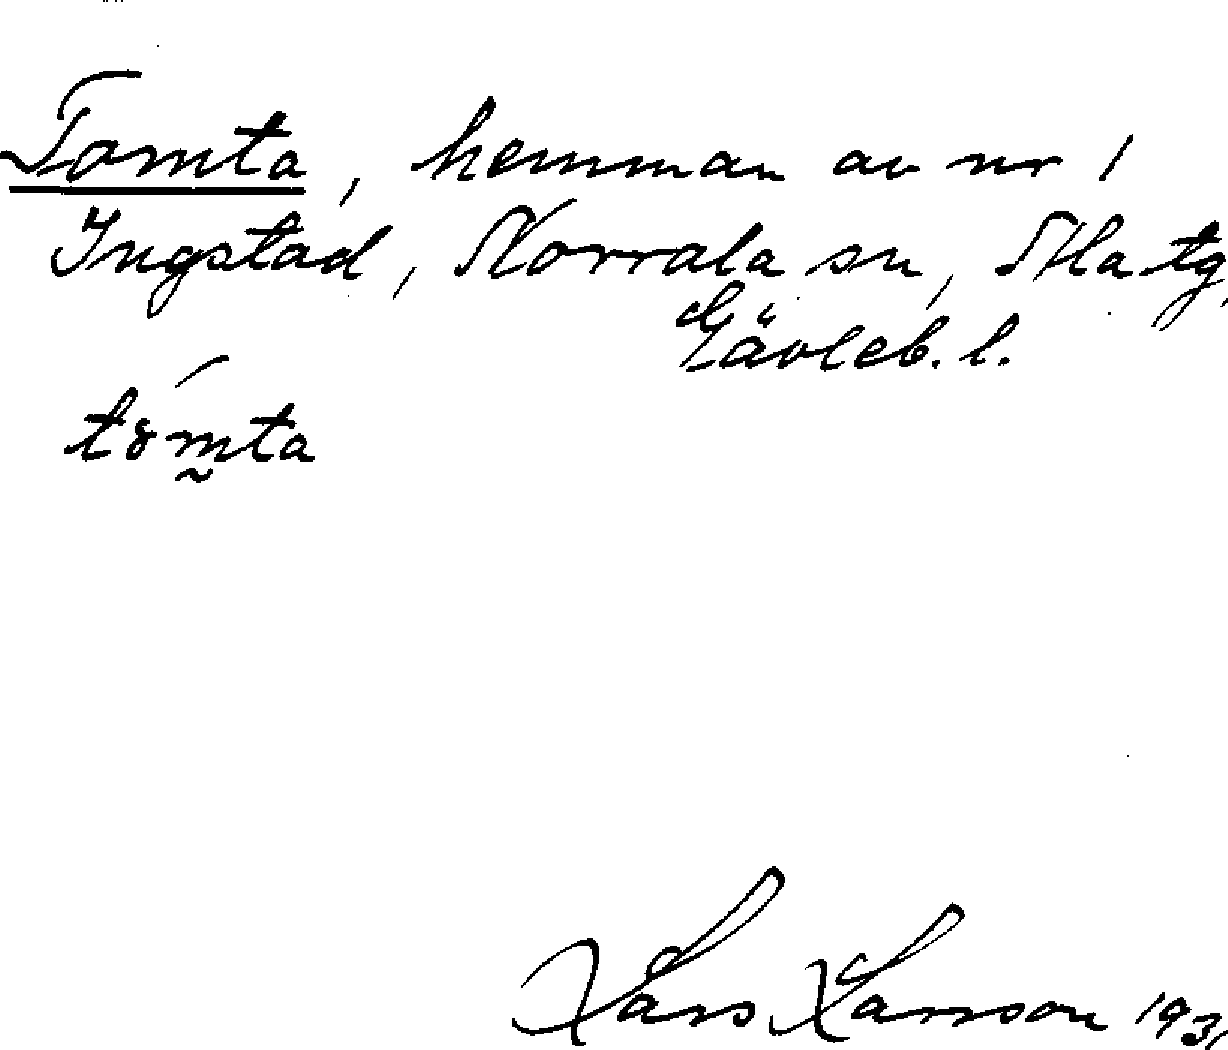 Tomta, hemman av nr 1
Ingstad, Norrala sn, Ala tg,
Gävleb. l.
tȣm̰ta
Lars Larsson 193